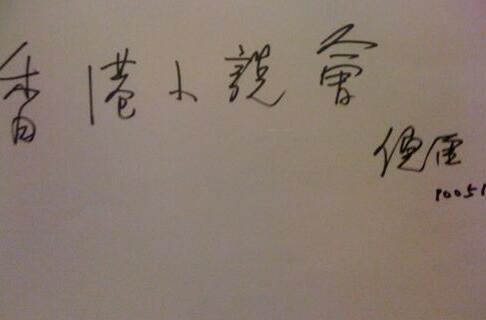 香港小說會
10051